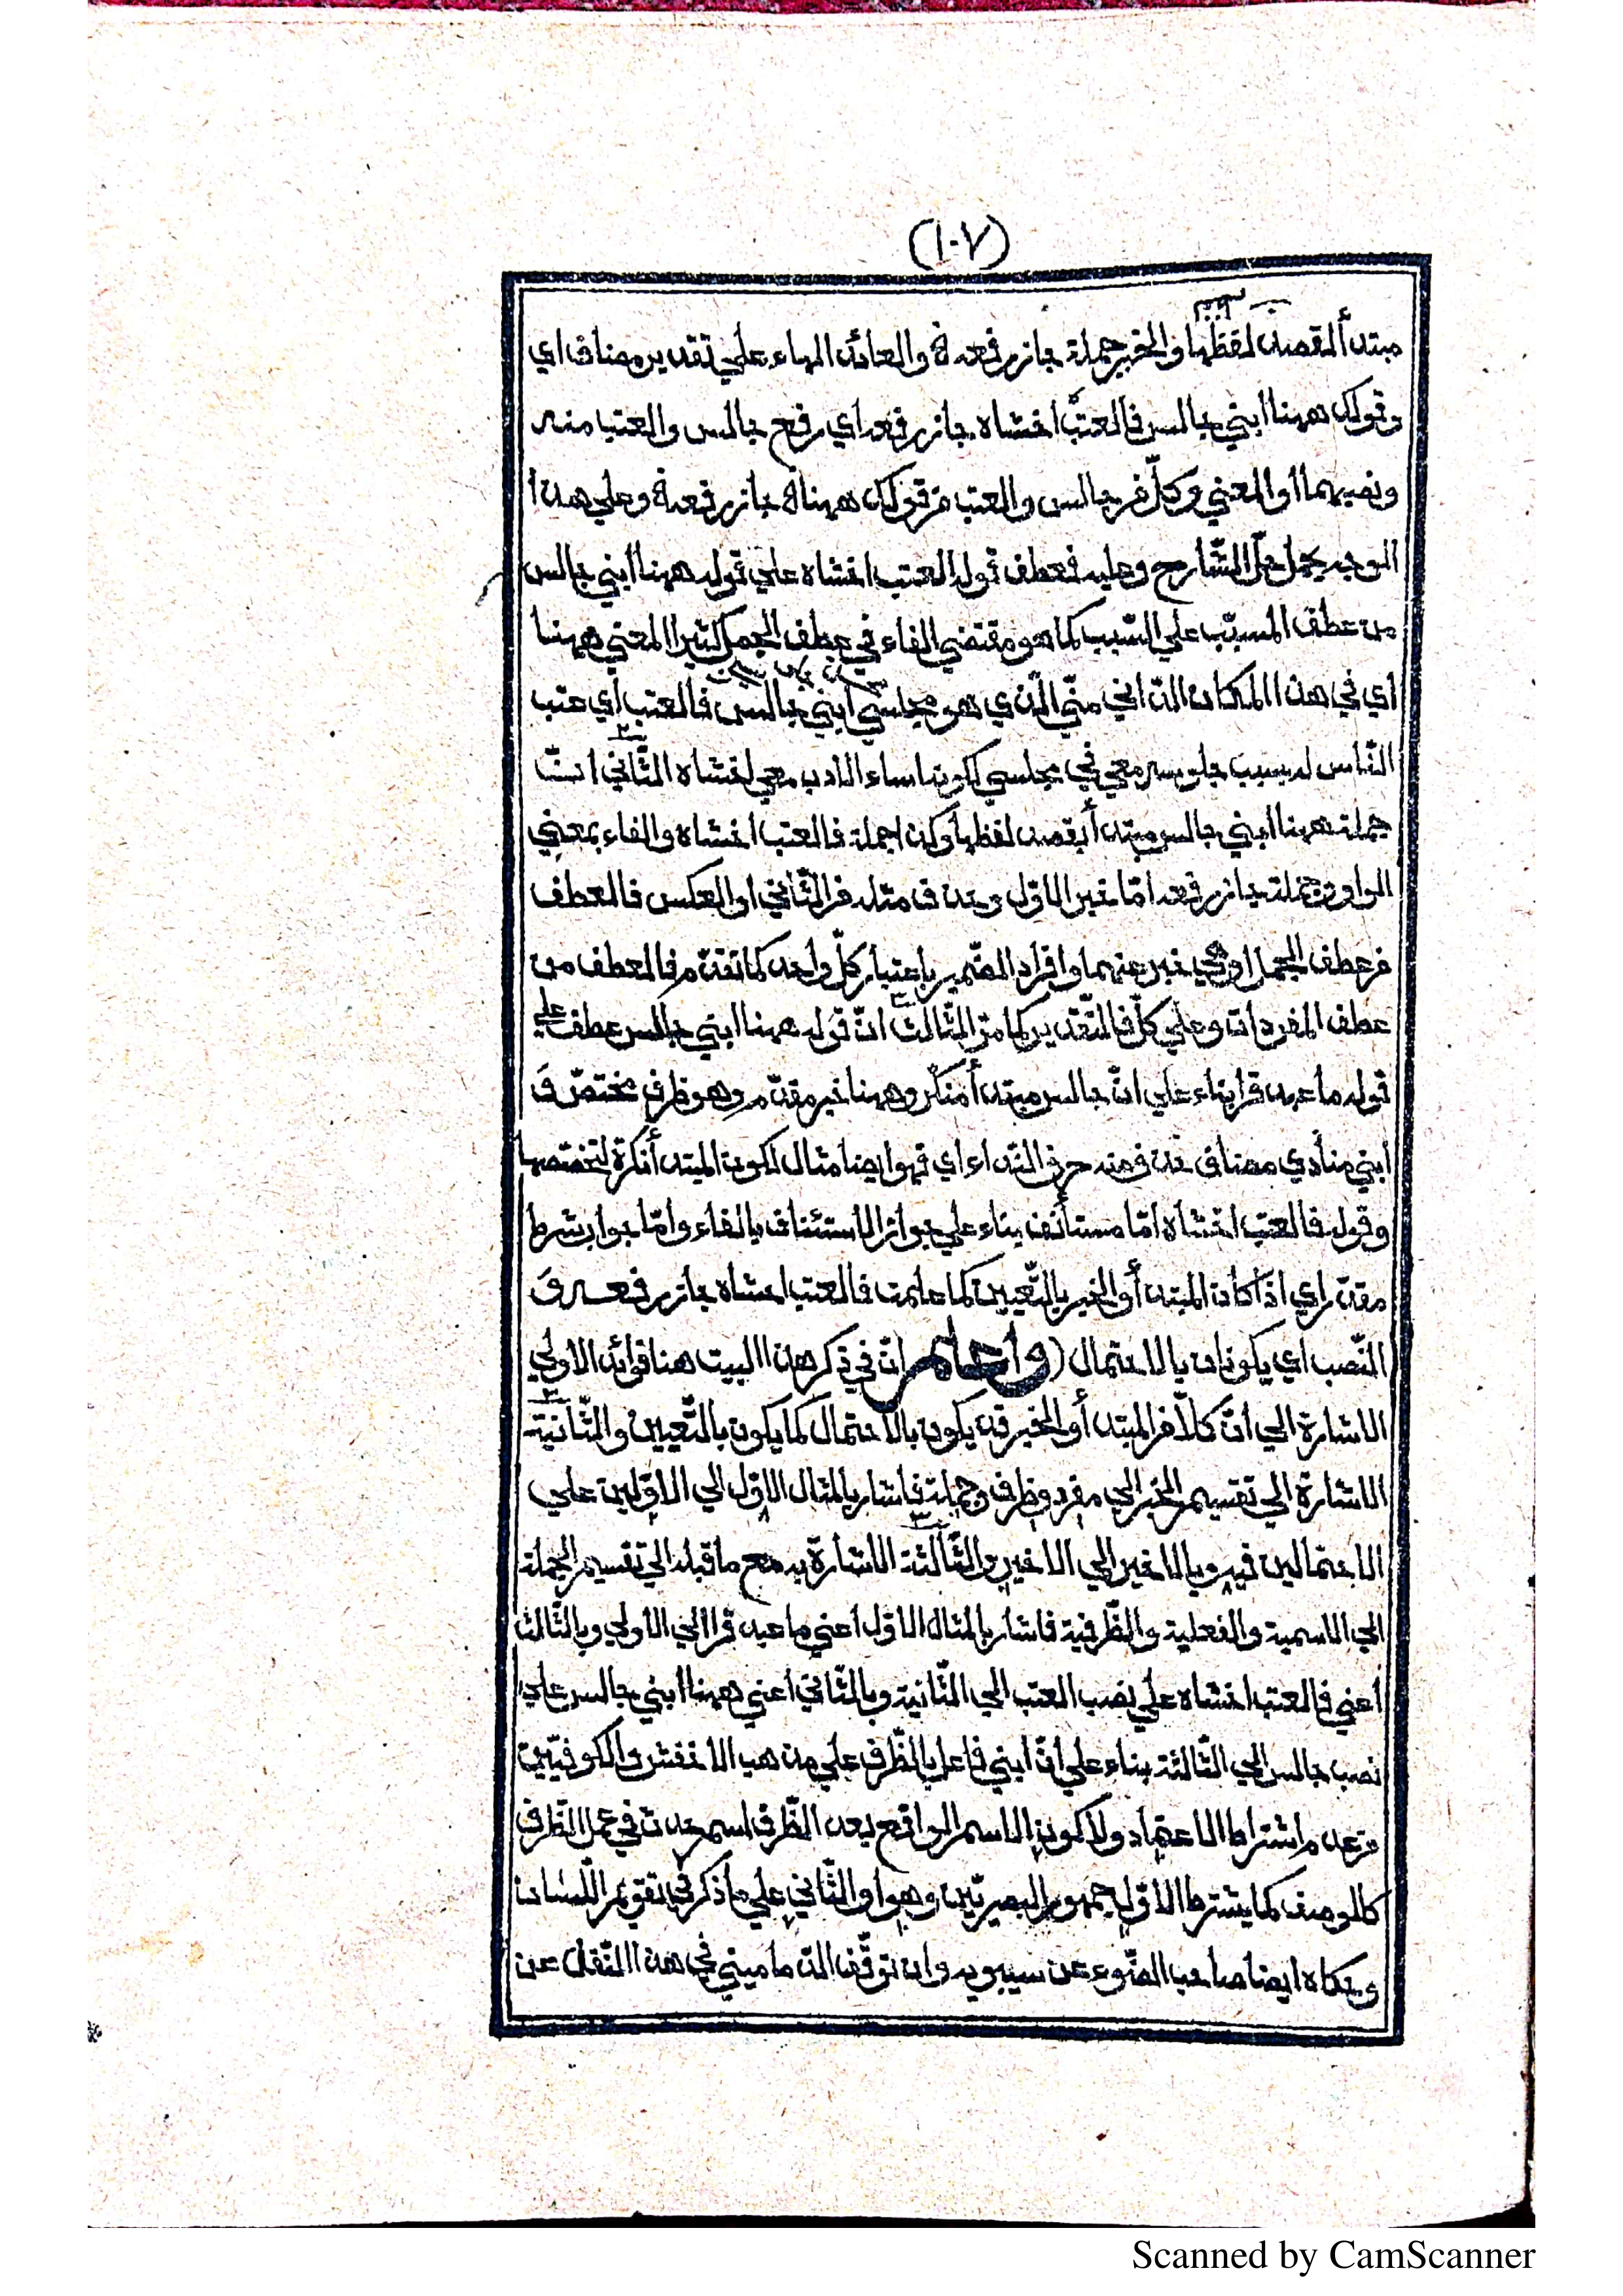 (١٠٧)
مبتدأ لقصد لفظها والخبر جملة جاز رفعه والعائد الهاء علي تقدير مضاف اي
وقولك ههنا ابني جالس فالعتب اخشاه جاز رفعه اي رفع جالس والعتب منه
ونصبهما أو المعني وكلّ من جالس والعتب من قولك ههنا جاز رفعه وعلي هذا
الوجه يحمل حلّ الشّارح وعليه فعطف قوله العتب اخشاه علي قوله ههنا ابني جالس
من عطف المسبّب علي السّبب كما هو مقتضي الفاء في عطف الجمل كثيرا المعني ههنا
أي في هذا المكان الدّاني منّي الّذي هو مجلسي ابني جالس فالعتب أي عتب
النّاس له بسبب جلوسه معي في مجلسي لكونه اساء الادب معي اخشاه الثّاني انّ
جملة ههنا ابني جالس مبتدأ بقصد لفظها وكذا جملة فالعتب اخشاه والفاء بمعني
الواو وجملة جاز رفعه امّا خبر الاوّل وحذف مثله من الثّاني او العكس فالعطف
من عطف الجمل او هي خبر عنهما وافراد الضّمير باعتبار كلّ واحد كما تقدّم فالعطف من
عطف المفردات وعلي كلّ فالتّقدير كما مرّ الثّالث انّ قوله ههنا ابني جالس عطف علي
قوله ما عبد قرا بناء علي انّ جالس مبتدأ منكر وههنا خبر مقدّم وهو ظرف مختصّ وَ
ابني منادي مضاف حذف منه حرف النّداء اي فهو ايضا مثال لكون المبتدأ نكرة لتخصّصها
وقوله فالعتب اخشاه امّا مستأنف بناء علي جواز الاستئناف بالفاء وامّا جواب شرط
مقدّر اي اذا كان المبتدأ والخبر بالتّعيين كما علمت فالعتب اخشاه جاز رفعه وَ
النّصب اي يكونان بالاحتمال (واعلم انّ في ذكر هذا البيت هنا فوائد الاولي
الاشارة الي انّ كلّا من المبتدأ والخبر قد يكون بالاحتمال كما يكون بالتّعيين والثّانية
الاشارة الي تقسيم الخبر الي مفرد وظرف وجملة فاشار بالمثال الاوّل الي الاوّلين علي
الاحتمالين فيه وبالاخير الي الاخير والثّالثة الاشارة به مع ما قبله الي تقسيم الجملة
الي الاسمية والفعلية والظّرفية فاشار بالمثال الاوّل اعني ما عبد قرا الي الاولي وبالثّالث
أعني فالعتب اخشاه علي نصب العتب الي الثّانية وبالثّاني اعني ههنا ابني جالس علي
نصب جالس الي الثّالثة بناء علي انّ ابني فاعل بالظّرف علي مذهب الاخفش والكوفيّين
من عدم اشتراط الاعتماد ولا كون الاسم الواقع بعد الظّرف اسم حدث في عمل الظّرف
كالوصف كما يشترط الاوّل جمهور البصريّين وهو او الثّاني علي ما ذكر في تقويم اللّسان
وحكاه ايضا صاحب الضّوء عن سيبويه وان توقّف الدّماميني في هذا النّقل عن
Scanned by CamScanner